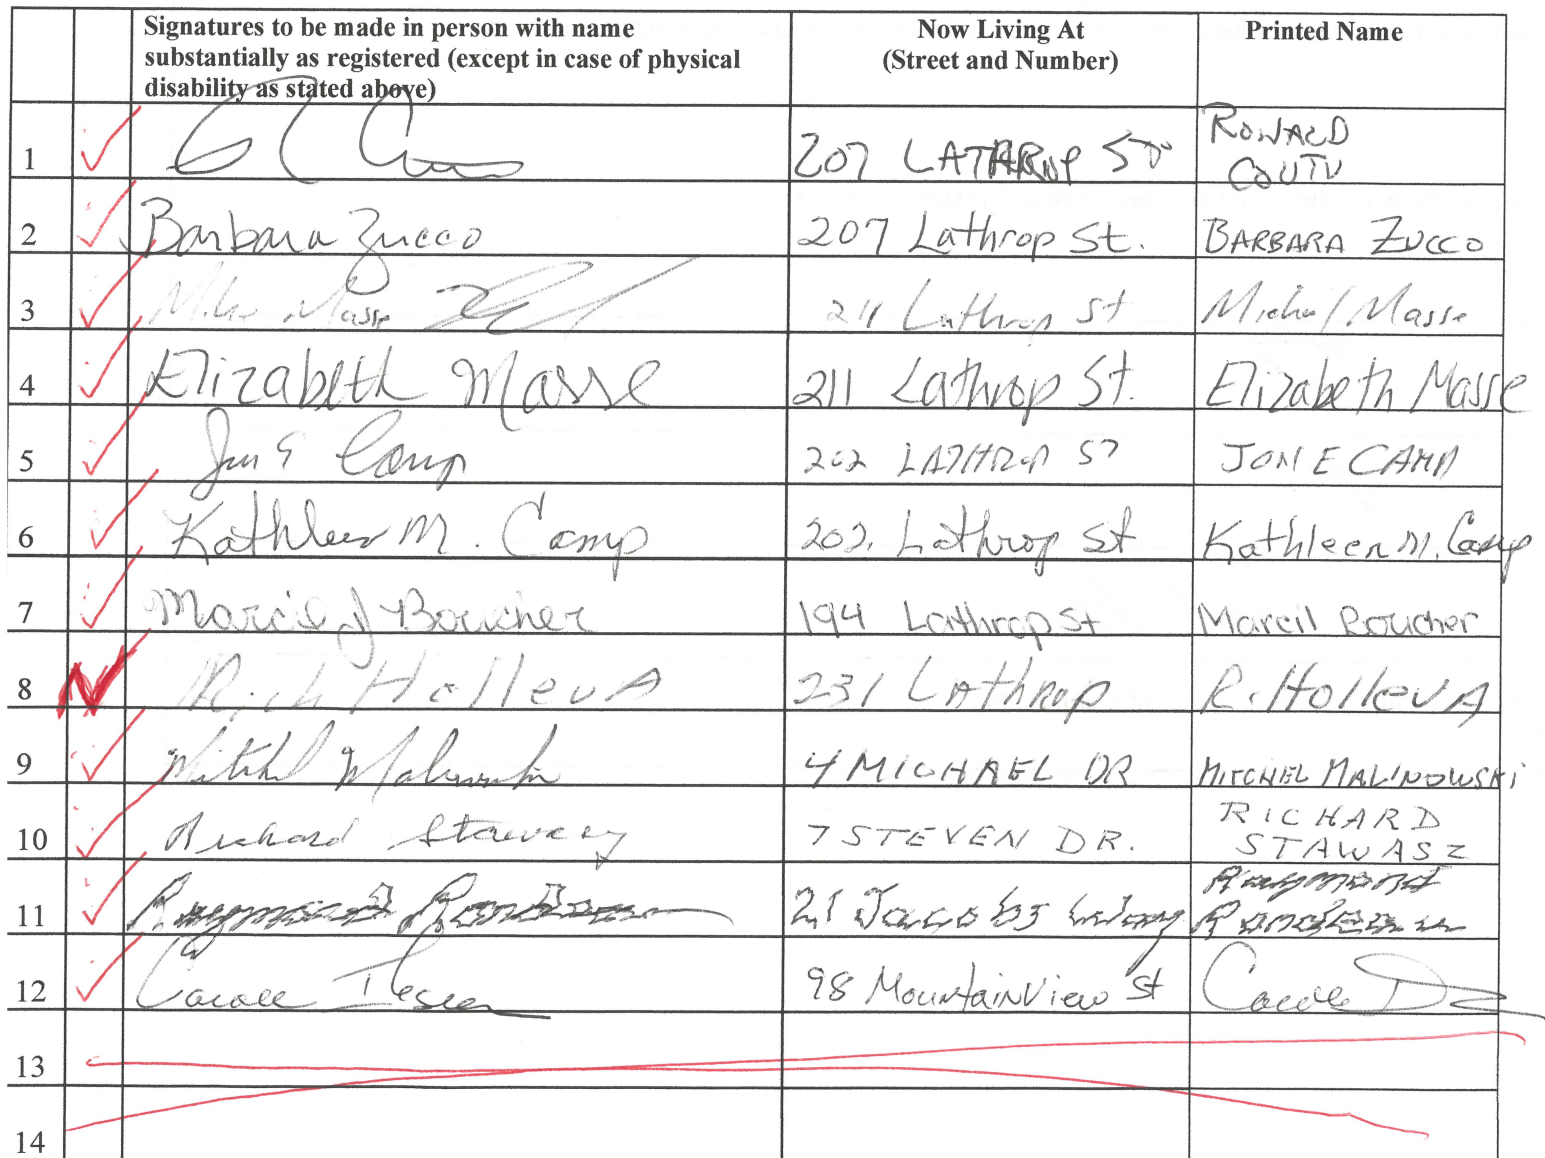 Signatures to be made in person with name
substantially as registered (except in case of physical
disability as stated above)
Now Living At
(Street and Number)
Printed Name
1 207 LATHROP ST RONALD
COUTU
2 Barbara Zucco 207 Lathrop St. BARBARA ZUCCO
3 Mike Masse 211 Lathrop St Michael Masse
4 Elizabeth Masse 211 Lathrop St. Elizabeth Masse
5 Jon E Camp 202 LATHROP ST JON E CAMP
6 Kathleen M. Camp 202 Lathrop St Kathleen M. Camp
7 Marcil J Boucher 194 Lathrop St Marcil Boucher
8 Rich HollevA 231 LAthrop R. HollevA
N
9 Mitchel Malinowski 4 MICHAEL DR MITCHEL MALINOWSKI
10 Richard Stawasz 7 STEVEN DR. RICHARD
STAWASZ
11 Raymond Rondeau 21 Jacobs Way Raymond
Rondeau
12 Carole 98 Mountainview St Carole
13
14